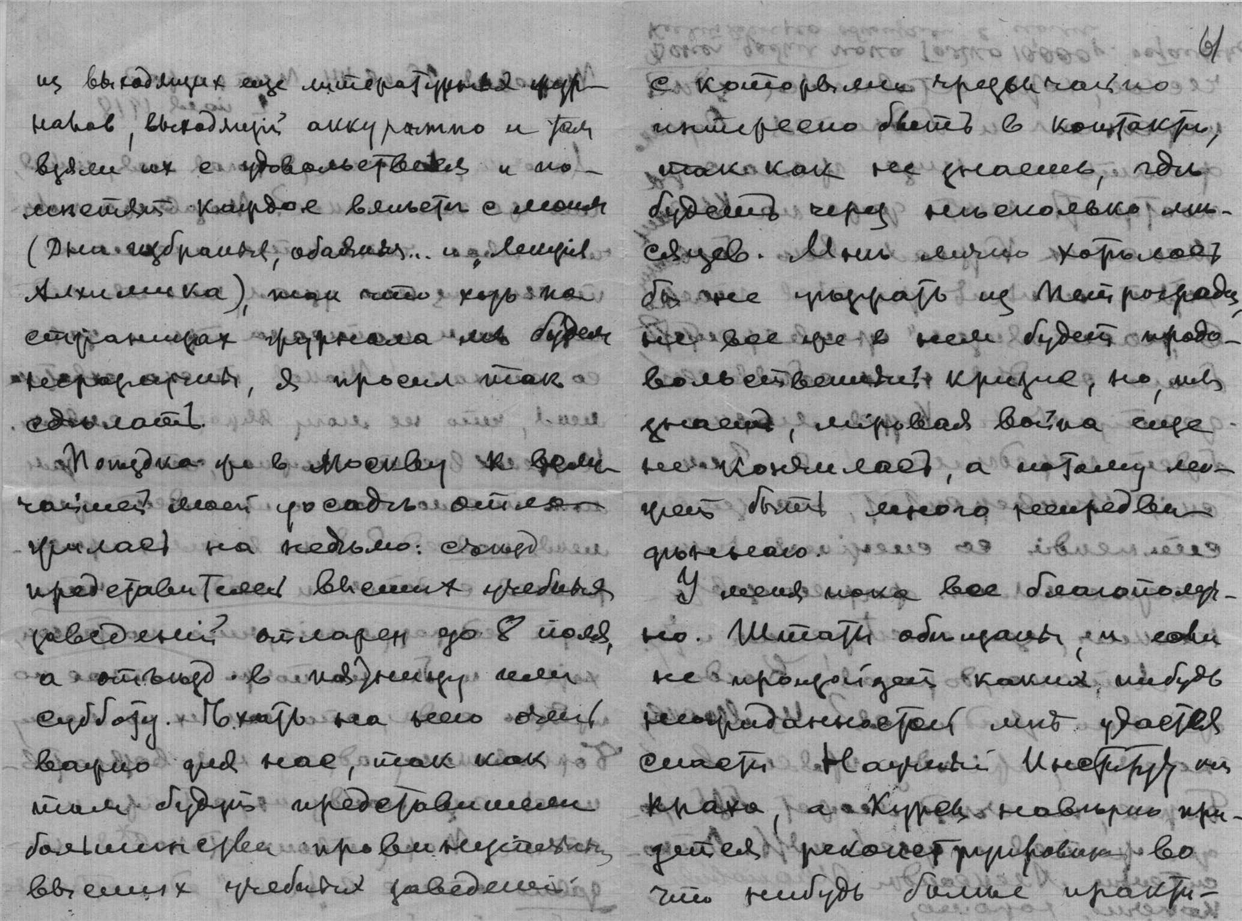 из выходящих еще литературных жур-
налов, выходящий аккуратно и там
взяли их с удовольствием и по-
местят каждое вместе с моим
(Дни избранья, обаянья... и „Лекция
Алхимика), так что хоть на
страницах журнала мы будем
неразлучны, я просил так
сдѣлать.
Поѣздка же в Москву к вели-
чайшей моей досадѣ отло-
жилась на недѣлю: съѣзд
представителей высших учебных
заведеній отложен до 8 іюля,
а отъѣзд в пятницу или
субботу. Ѣхать на него очень
важно для нас, так как
там будут представители
большинства провинціальных
высших учебных заведеній
61
с которыми чрезвычайно
интересно быть в контактѣ,
так как не знаешь, гдѣ
будешь через нѣсколько мѣ-
сяцев. Мнѣ лично хотѣлось
бы не уѣзжать из Петрограда,
не все же в нем будет продо-
вольственный кризис, но, кто
знает, міровая война еще
не кончилась, а потому мо-
жет быть много непредви-
дѣннаго.
У меня пока все благополуч-
но. Штаты обѣщаны, и если
не произойдет каких нибудь
неожиданностей мнѣ удастся
спасти Научный Институт от
краха, а Курсы навѣрно при-
дется реконструировать во
что нибудь болѣе практи-